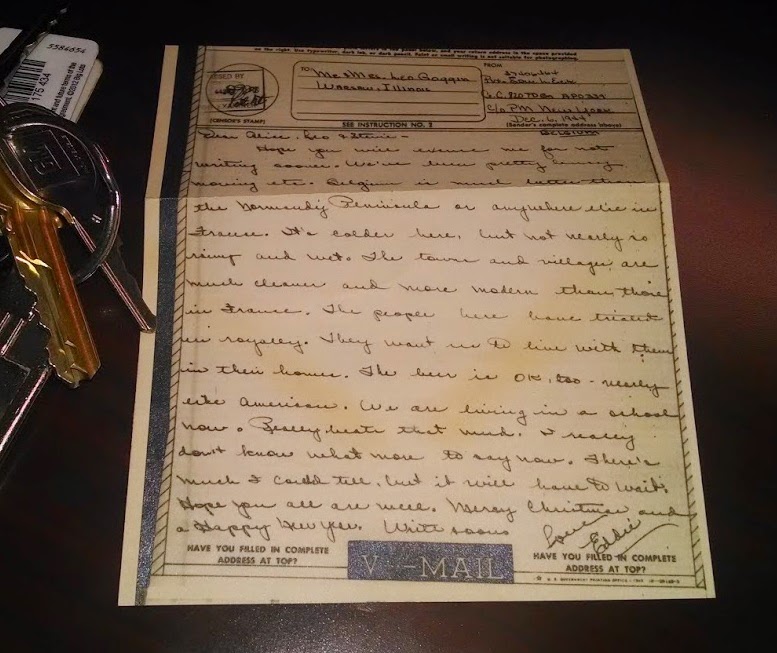 5586654
175 434
©2012 Big Lots
on the right. Use typewriter, dark ink, or dark pencil. Faint or small writing is not suitable for photographing.
TO
Mr & Mrs. Leo
Warsaw, Illinois
FROM
Pvt.
APO 339
c/o PM New York
Dec. 6, 1944
(CENSOR'S STAMP)
SEE INSTRUCTION NO. 2
(Sender's complete address above)
BELGIUM
Dear Alice, Leo &
Hope you will excuse me for not
writing sooner. We've been pretty busy
moving etc. Belgium is much better than
the Normandy Peninsula or anywhere else in
France. It's colder here, but not nearly so
rainy and wet. The towns and villages are
much cleaner and more modern than those
in France. The people here have treated
us royally. They want us to live with them
in their homes. The beer is OK, too - nearly
like American. We are living in a school
now. Really beats that mud. I really
don't know what more to say now. There's
much I could tell, but it will have to wait.
Hope you all are well. Merry Christmas and
a Happy New Year. Write soon
Love
Eddie
HAVE YOU FILLED IN COMPLETE
ADDRESS AT TOP?
V-MAIL
HAVE YOU FILLED IN COMPLETE
ADDRESS AT TOP?
U. S. GOVERNMENT PRINTING OFFICE